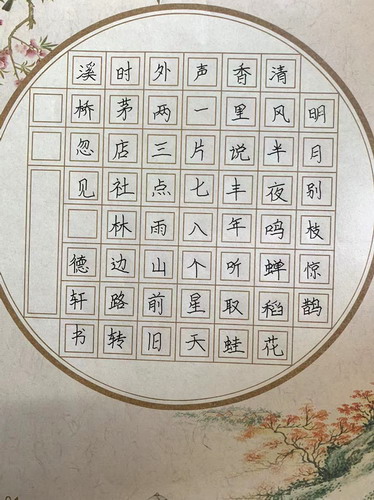 明月别枝惊鹊
清风半夜鸣蝉稻花
香里说丰年听取蛙
声一片七八个星天
外两三点雨山前旧
时茅店社林边路转
溪桥忽见 德轩书